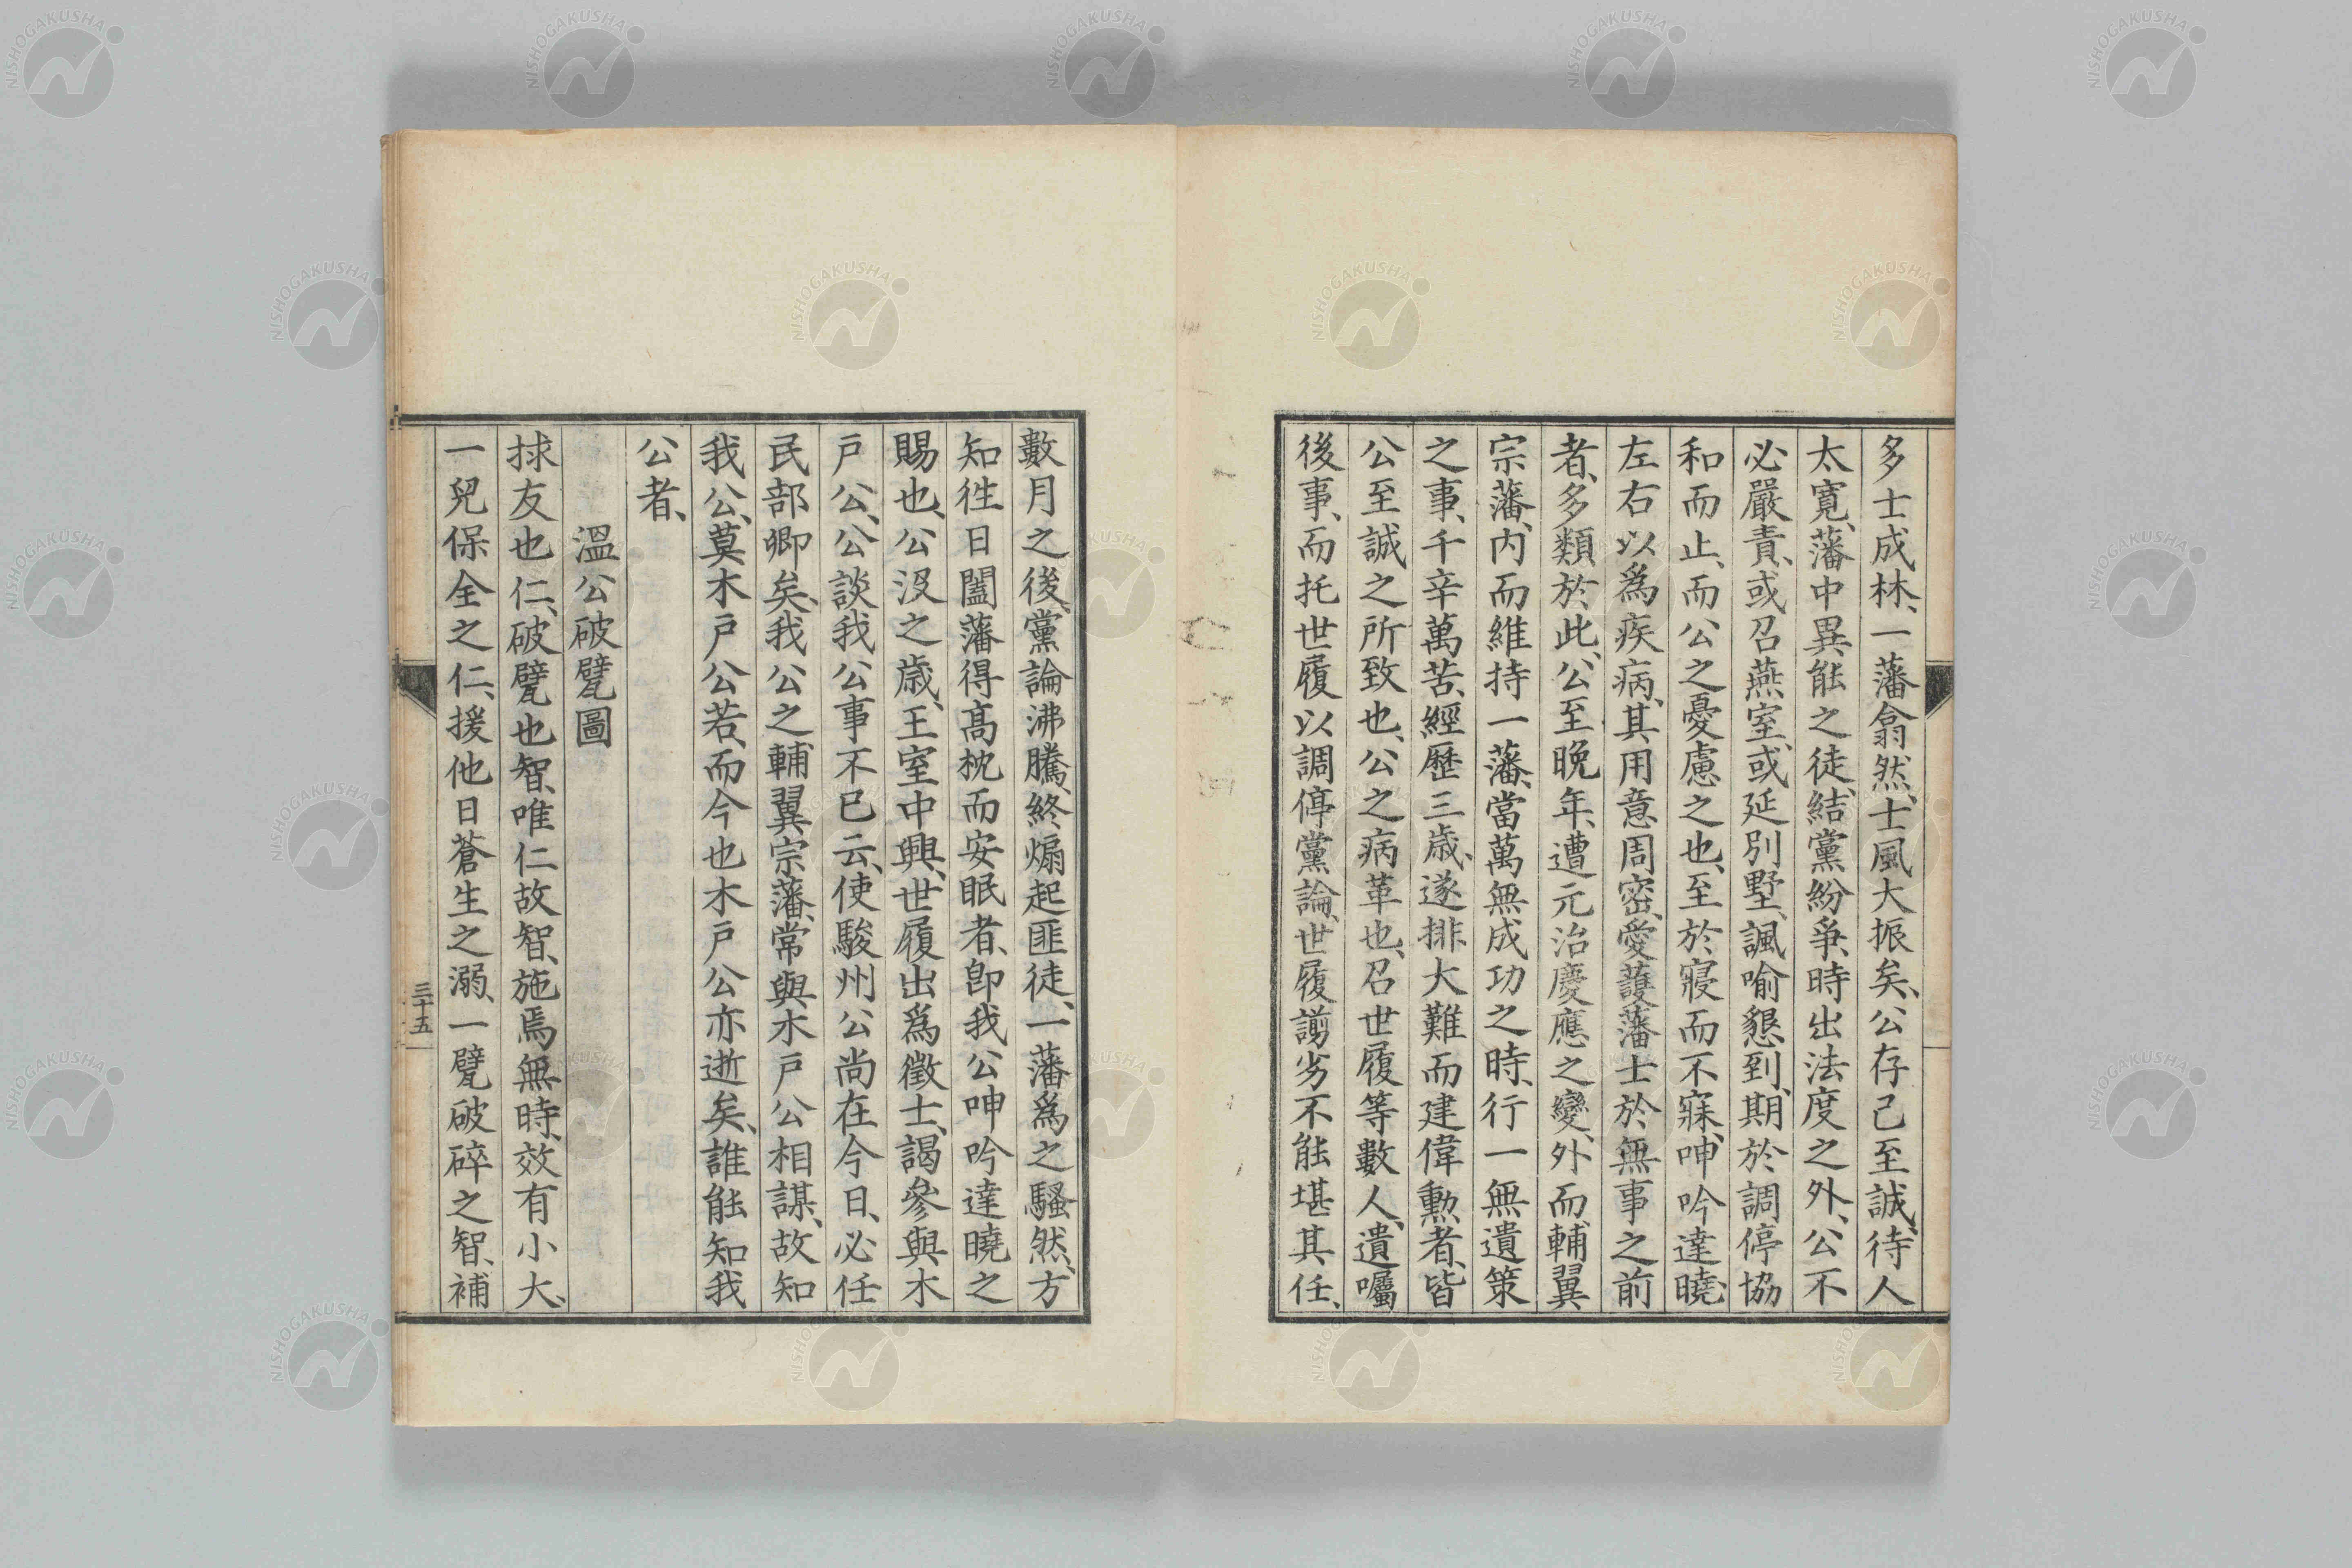 多士成林、一藩翕然、士風大振矣、公存己至誠、待人
太寛、藩中異能之徒、結黨紛爭、時出法度之外、公不
必嚴責、或召燕室、或延別墅、諷喻懇到、期於調停協
和而止、而公之憂慮之也、至於寢而不寐、呻吟達曉、
左右以爲疾病、其用意周密、愛護藩士於無事之前
者、多類於此、公至晩年、遭元治慶應之變、外而輔翼
宗藩、内而維持一藩、當萬無成功之時、行一無遺策
之事、千辛萬苦、經歷三歳、遂排大難而建偉勲者、皆
公至誠之所致也、公之病革也、召世履等數人、遺囑
後事、而托世履以調停黨論、世履謭劣不能堪其任、
數月之後、黨論沸騰、終煽起匪徒、一藩爲之騷然、方
知徃日闔藩得髙枕而安眠者、卽我公呻吟達曉之
賜也、公沒之歳、王室中興、世履出爲徵士、謁參與木
戸公、公談我公事不已云、使駿州公尚在今日、必任
民部卿矣、我公之輔翼宗藩、常與木戸公相謀、故知
我公、莫木戸公若、而今也木戸公亦逝矣、誰能知我
公者、
溫公破甓圖
捄友也仁、破甓也智、唯仁故智、施焉無時、效有小大、
一兒保全之仁、援他日蒼生之溺、一甓破碎之智、補
三十五
NISHOGAKUSHA